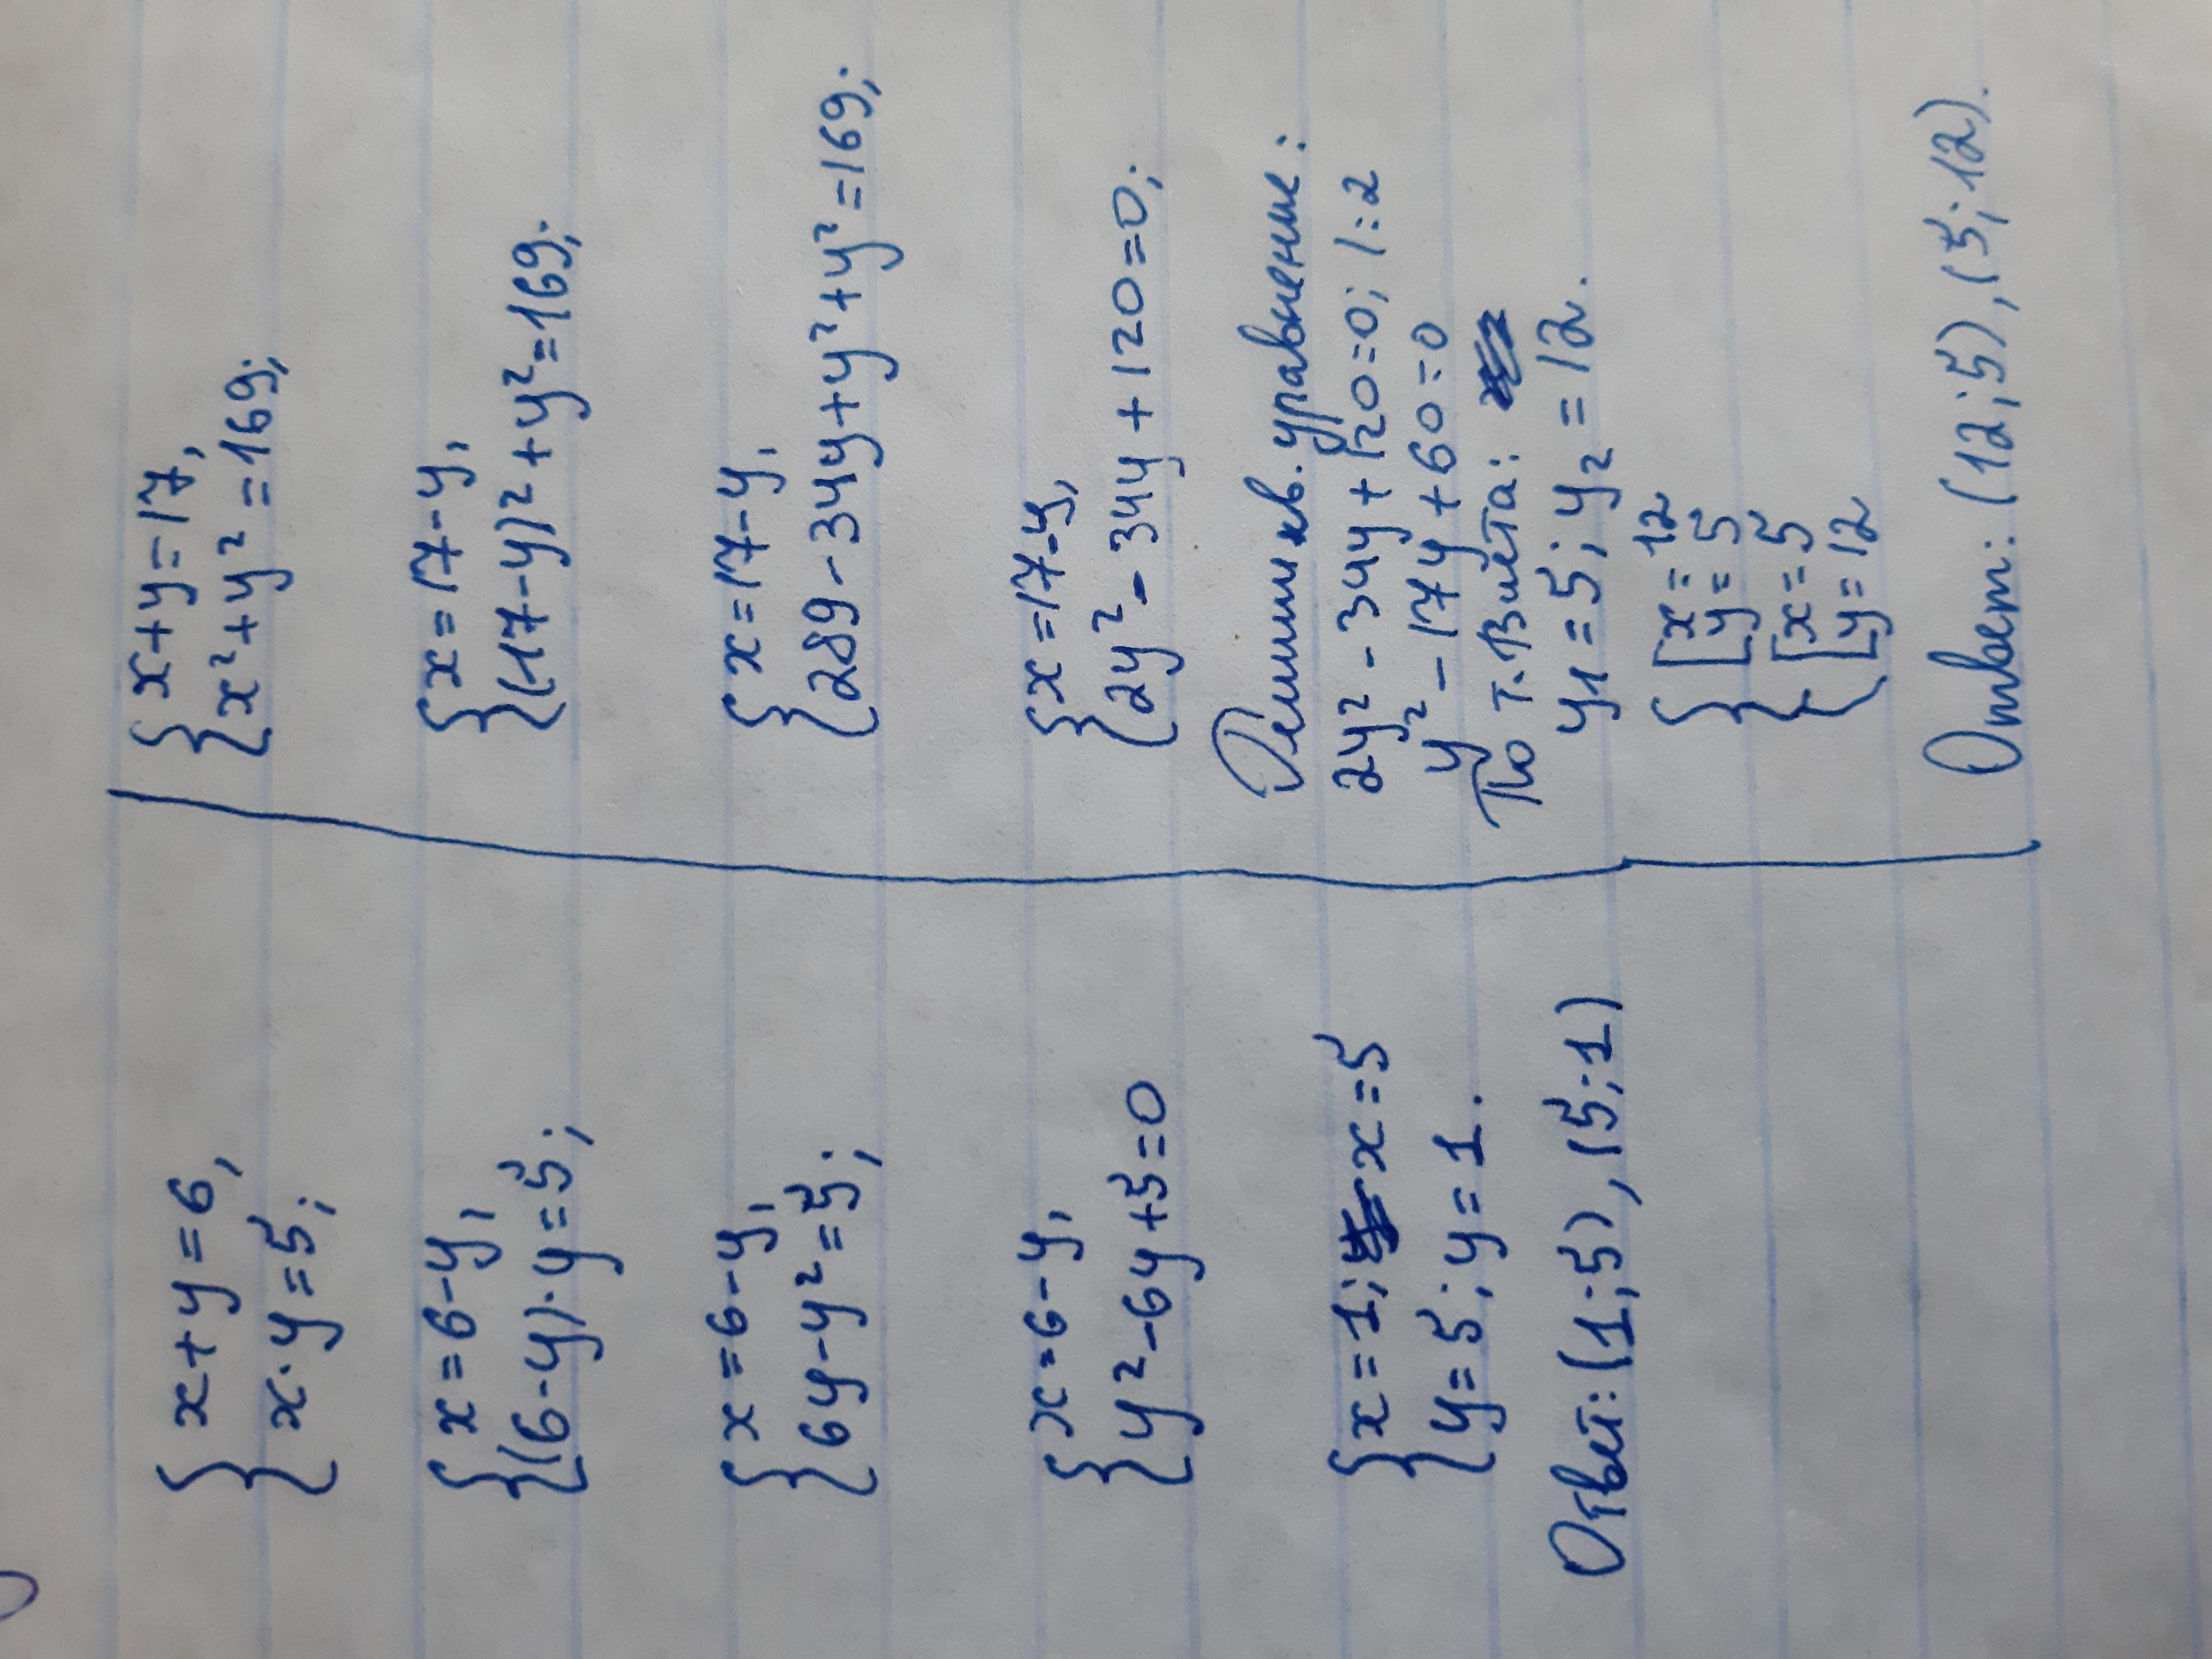 x+y=6,
x·y=5;
x=6-y,
(6-y)·y=5;
x=6-y,
6y-y²=5;
x=6-y,
y²-6y+5=0
x=1; x=5
y=5; y=1.
Ответ: (1;5), (5;1)
x+y=17,
x²+y²=169;
x=17-y,
(17-y)²+y²=169;
x=17-y,
289-34y+y²+y²=169;
x=17-y,
2y²-34y+120=0;
Решим кв. уравнение:
2y²-34y+120=0; |:2
y²-17y+60=0
По т. Виета:
y₁=5; y₂=12.
x=12
y=5
x=5
y=12
Ответ: (12;5), (5;12).